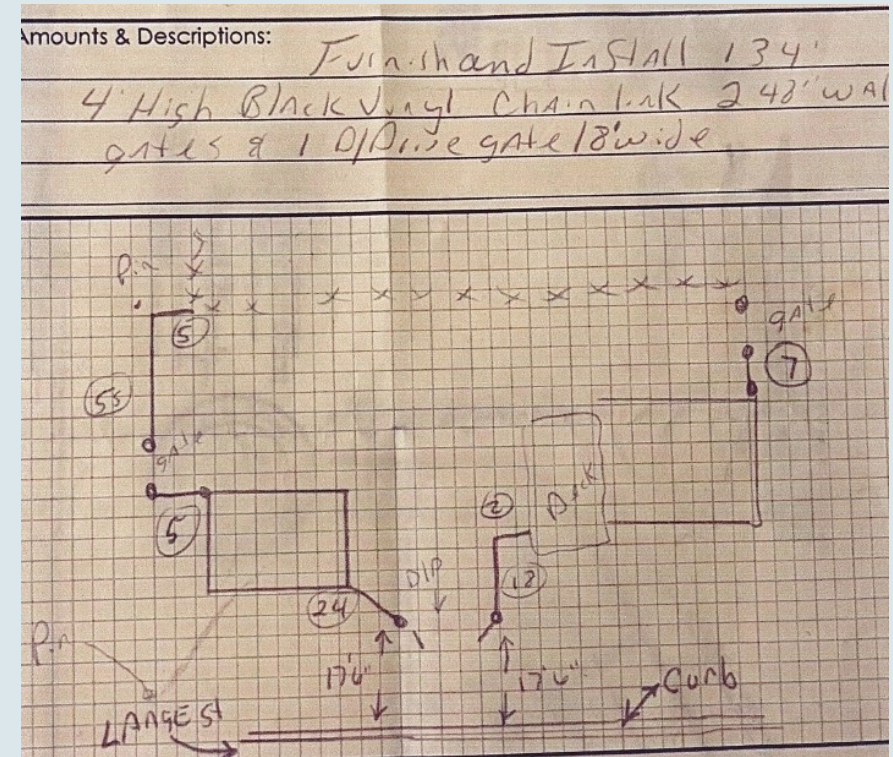 Amounts & Descriptions:
Furnish and Install 134'
4' High Black Vinyl Chain link 2 48" WAl
gates & 1 D/Drive gate 18' wide
Pin
5
gAte
7
55
gAte
Deck
2
5
12
D/D
24
Pin
17'6"
17'6"
Curb
LANGE St